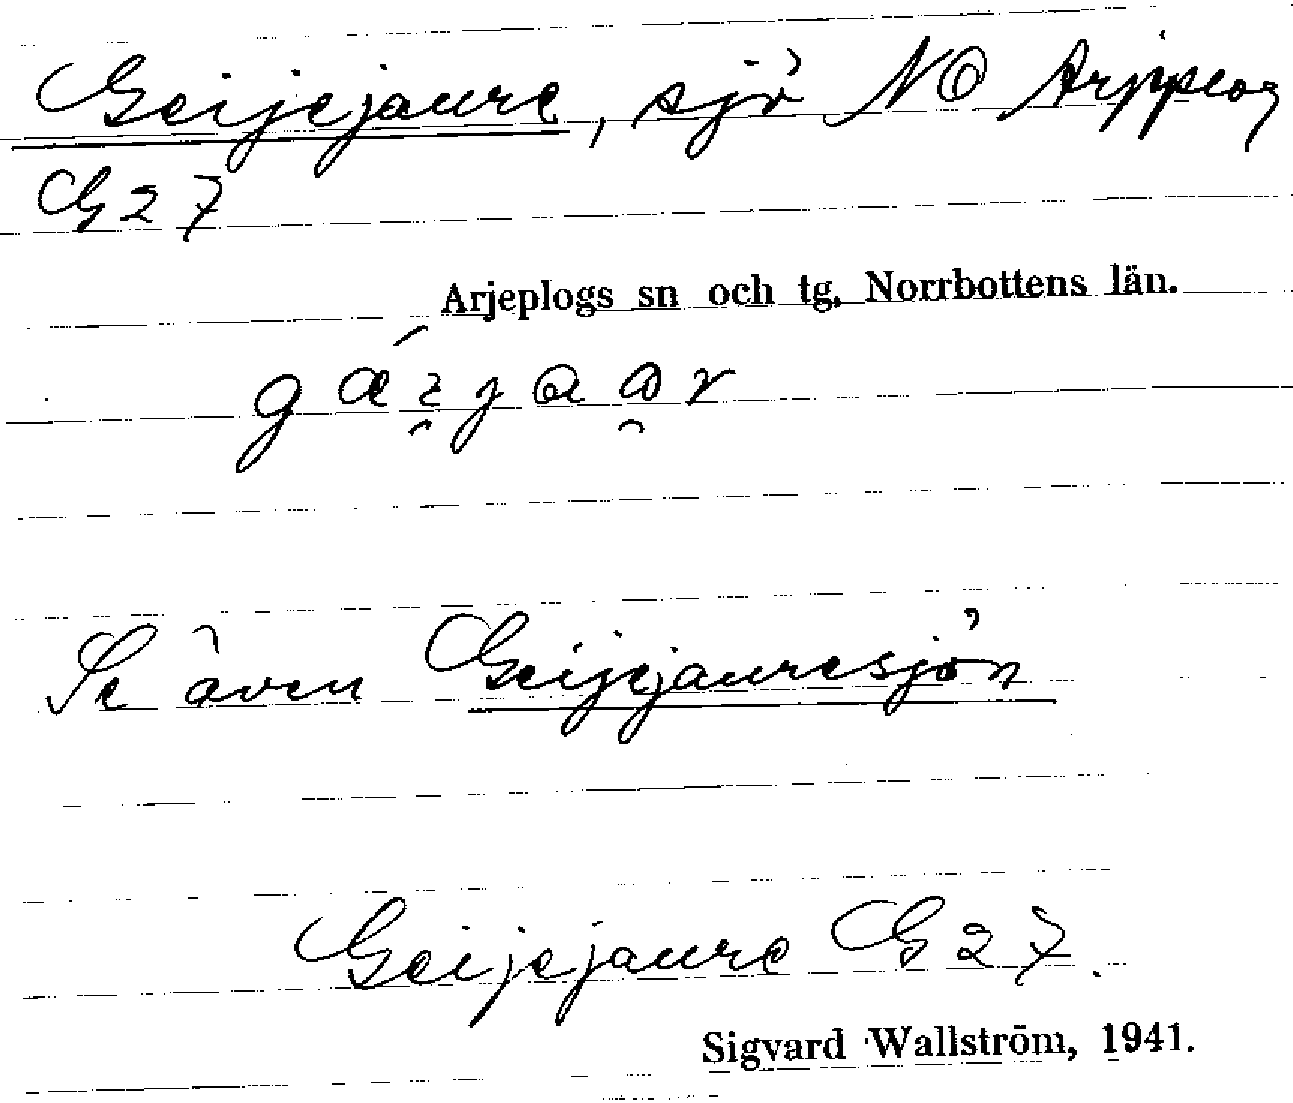 Geijejaure, sjö NO Arjeplog
G 27
Arjeplogs sn och tg, Norrbottens län.
Se även Geijejauresjön
Geijejaure G 27.
Sigvard Wallström, 1941.